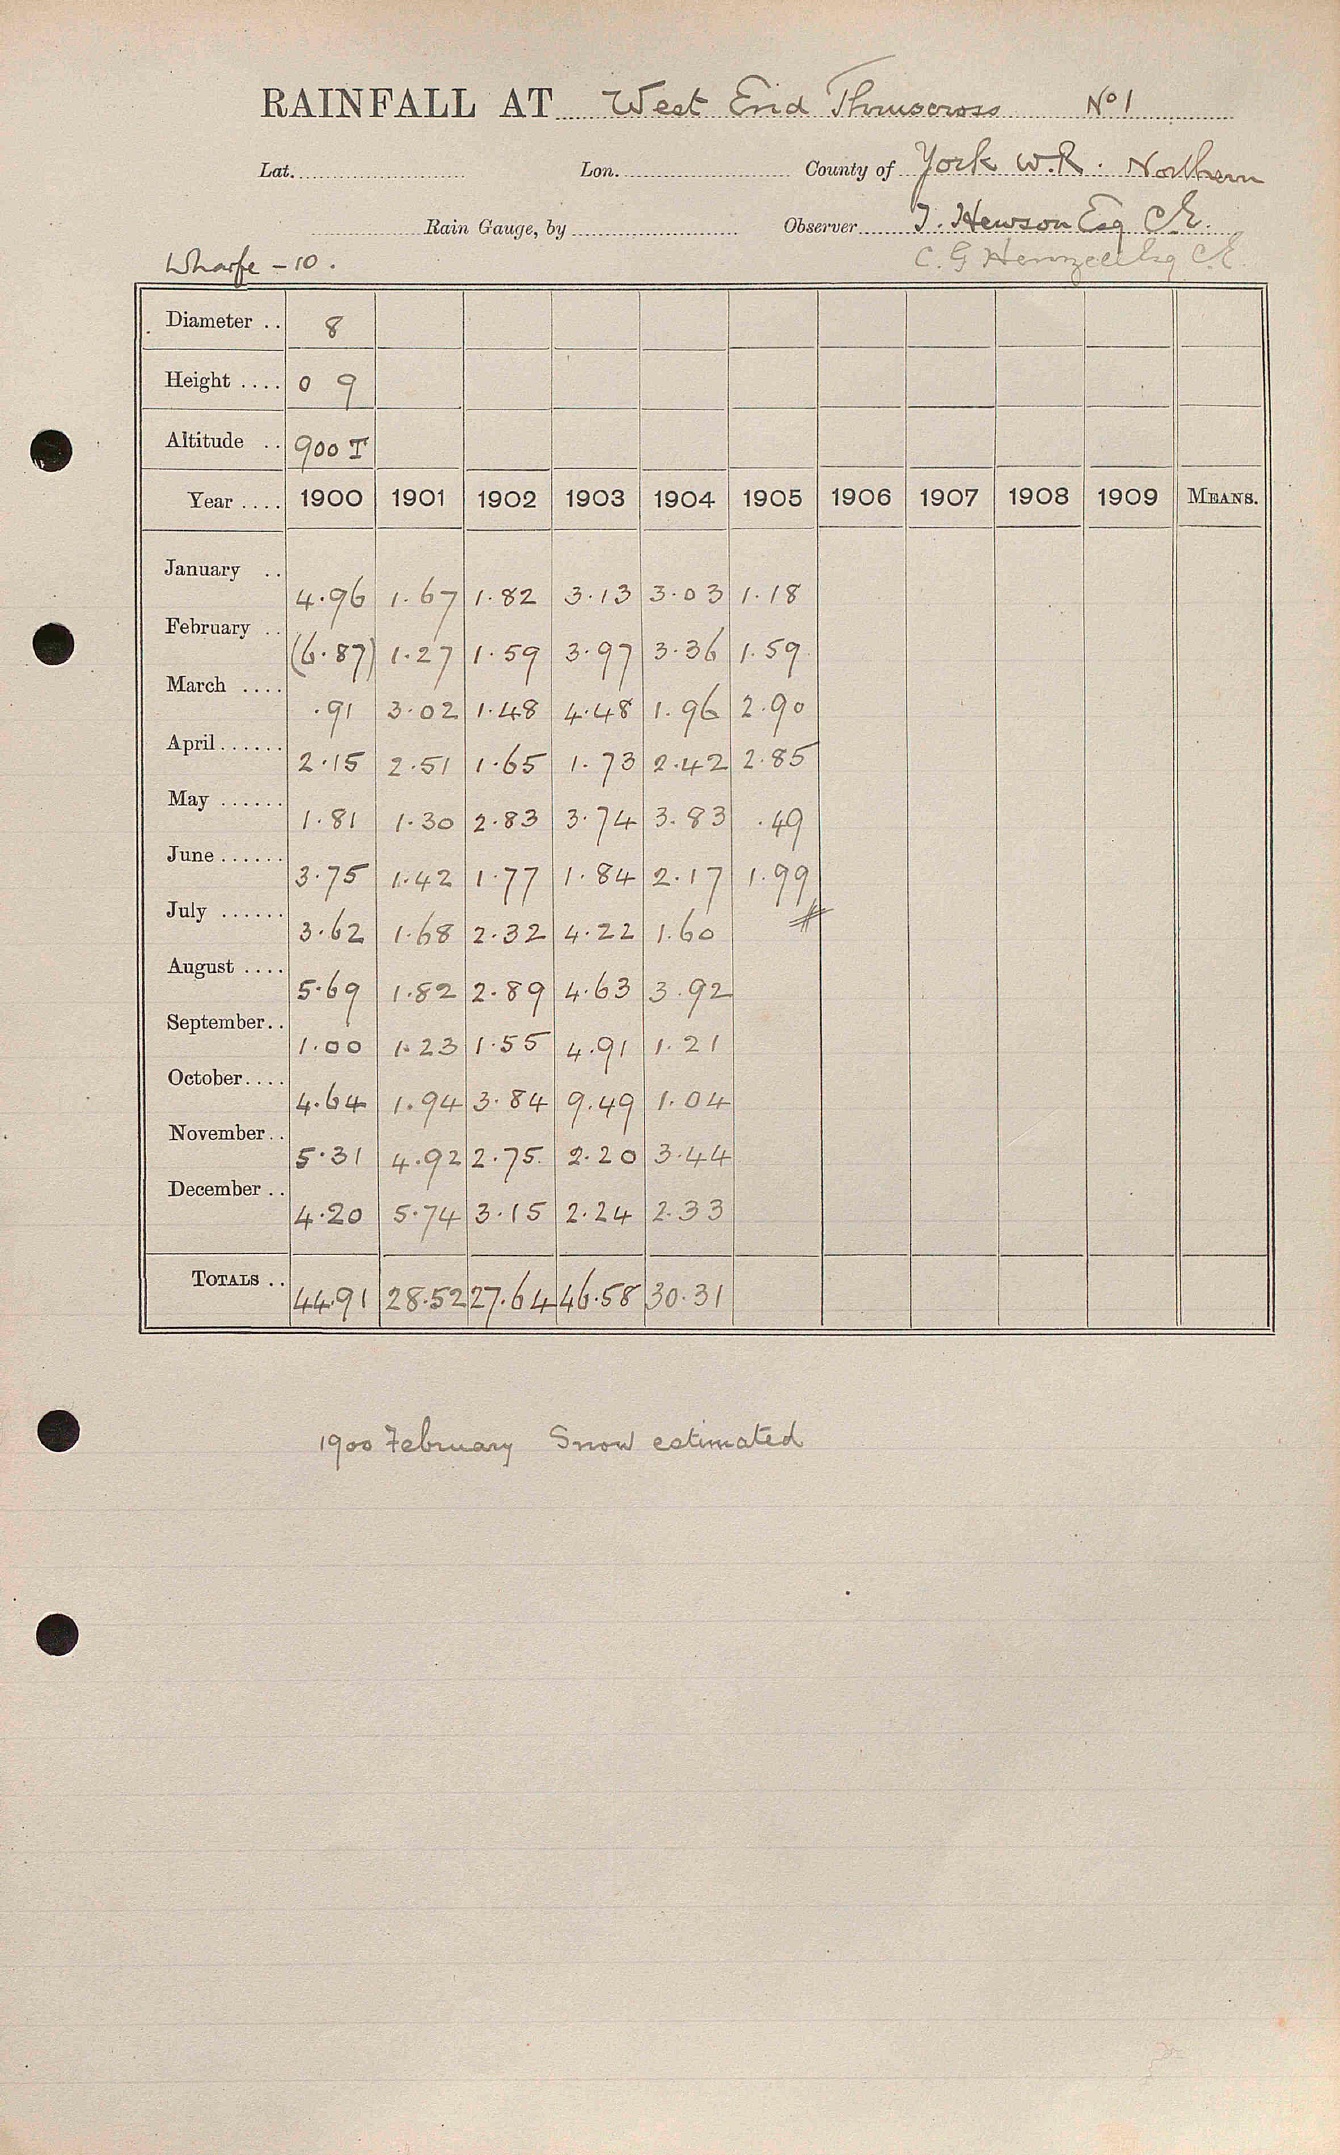 RAINFALL AT West End Thruscross No 1
Lat. Lon. County of York W.R. Northern
Rain Gauge, by Observer T. Hewson Esq C.E.
Wharfe - 10. C. G Esq C.E.
Diameter .. 8
Height .... 0 9
Altitude .. 900 T
Year .... 1900 1901 1902 1903 1904 1905 1906 1907 1908 1909 MEANS.
January .. 4.96 1.67 1.82 3.13 3.03 1.18
February .. (6.87) 1.27 1.59 3.97 3.36 1.59
March .... .91 3.02 1.48 4.48 1.96 2.90
April ...... 2.15 2.51 1.65 1.73 2.42 2.85
May ...... 1.81 1.30 2.83 3.74 3.83 .49
June ...... 3.75 1.42 1.77 1.84 2.17 1.99
July ...... 3.62 1.68 2.32 4.22 1.60
August .... 5.69 1.82 2.89 4.63 3.92
September.. 1.00 1.23 1.55 4.91 1.21
October.... 4.64 1.94 3.84 9.49 1.04
November.. 5.31 4.92 2.75 2.20 3.44
December .. 4.20 5.74 3.15 2.24 2.33
TOTALS .. 44.91 28.52 27.64 46.58 30.31
1900 February Snow estimated